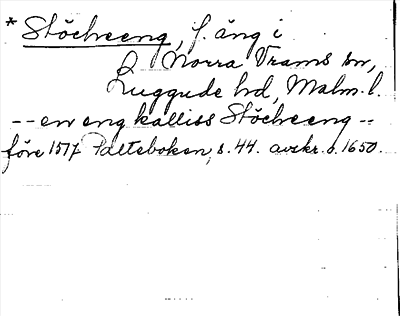 * Stöcheeng, f. äng i
Norra Vrams sn,
Luggude hd, Malm. l.
-- en eng kalliss Stöcheeng --
före 1517 Palteboken, s. 44. avskr. o. 1650.